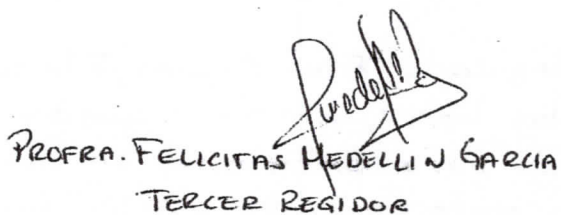 PROFRA. FELICITAS MEDELLIN GARCIA
TERCER REGIDOR